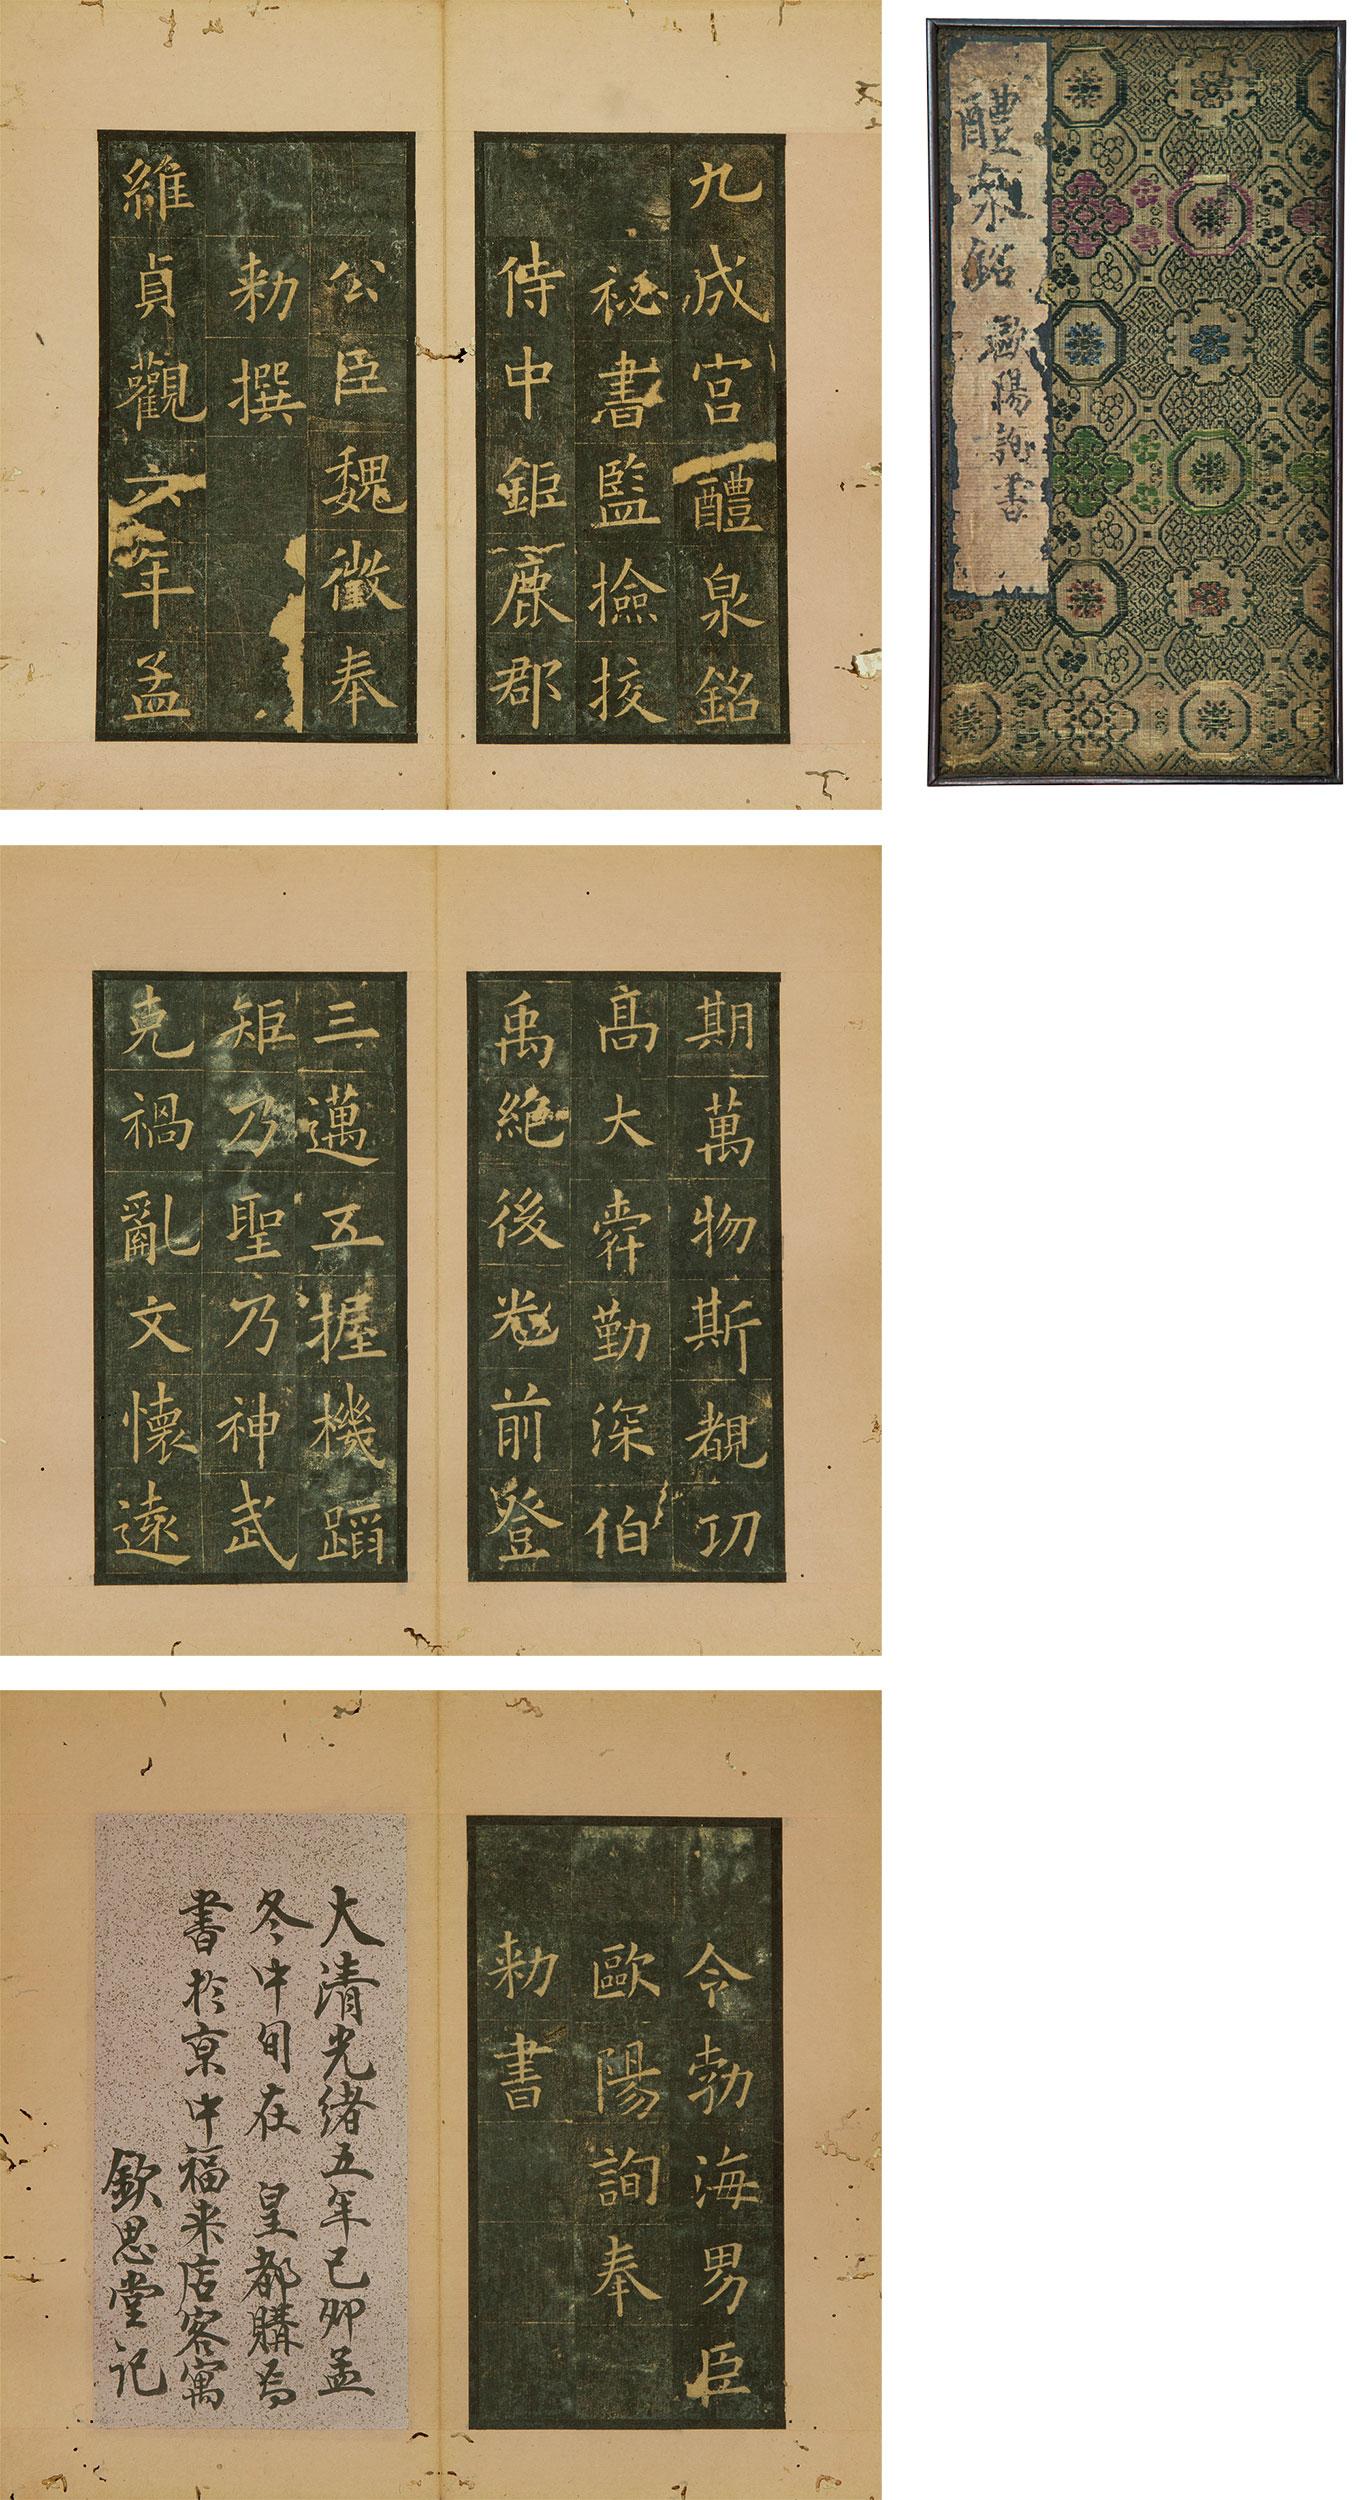 醴泉銘 歐陽詢書
九成宮醴泉銘
祕書監撿挍
侍中鉅鹿郡
公臣魏徵奉
勑撰
維貞觀六年孟
期萬物斯覩功
髙大舜勤深伯
禹絶後光前登
三邁五握機蹈
矩乃聖乃神武
克禍亂文懷遠
令勃海男臣
歐陽詢奉
勑書
大清光緒五年己卯孟
冬中旬在 皇都購為
書於京中福来店客寓
欽思堂記